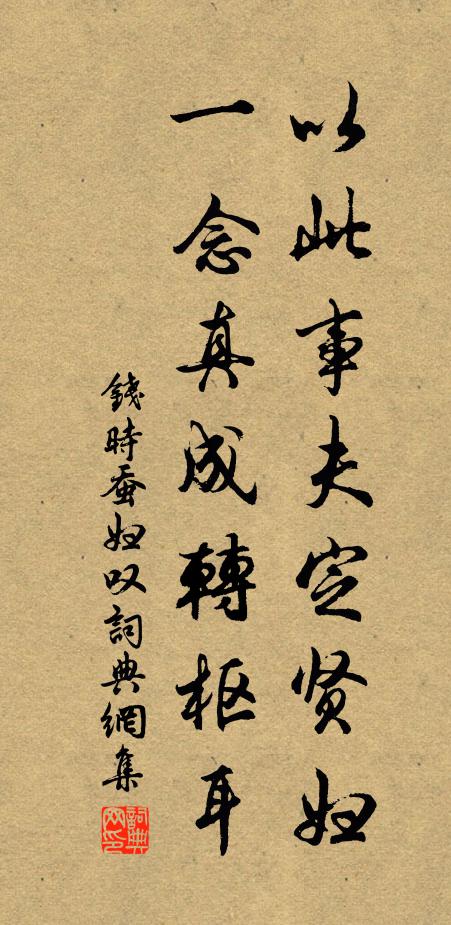 以此事夫定贤妇
一念真成轉枢耳
錢時蚕妇叹詞典網集
詞典网印